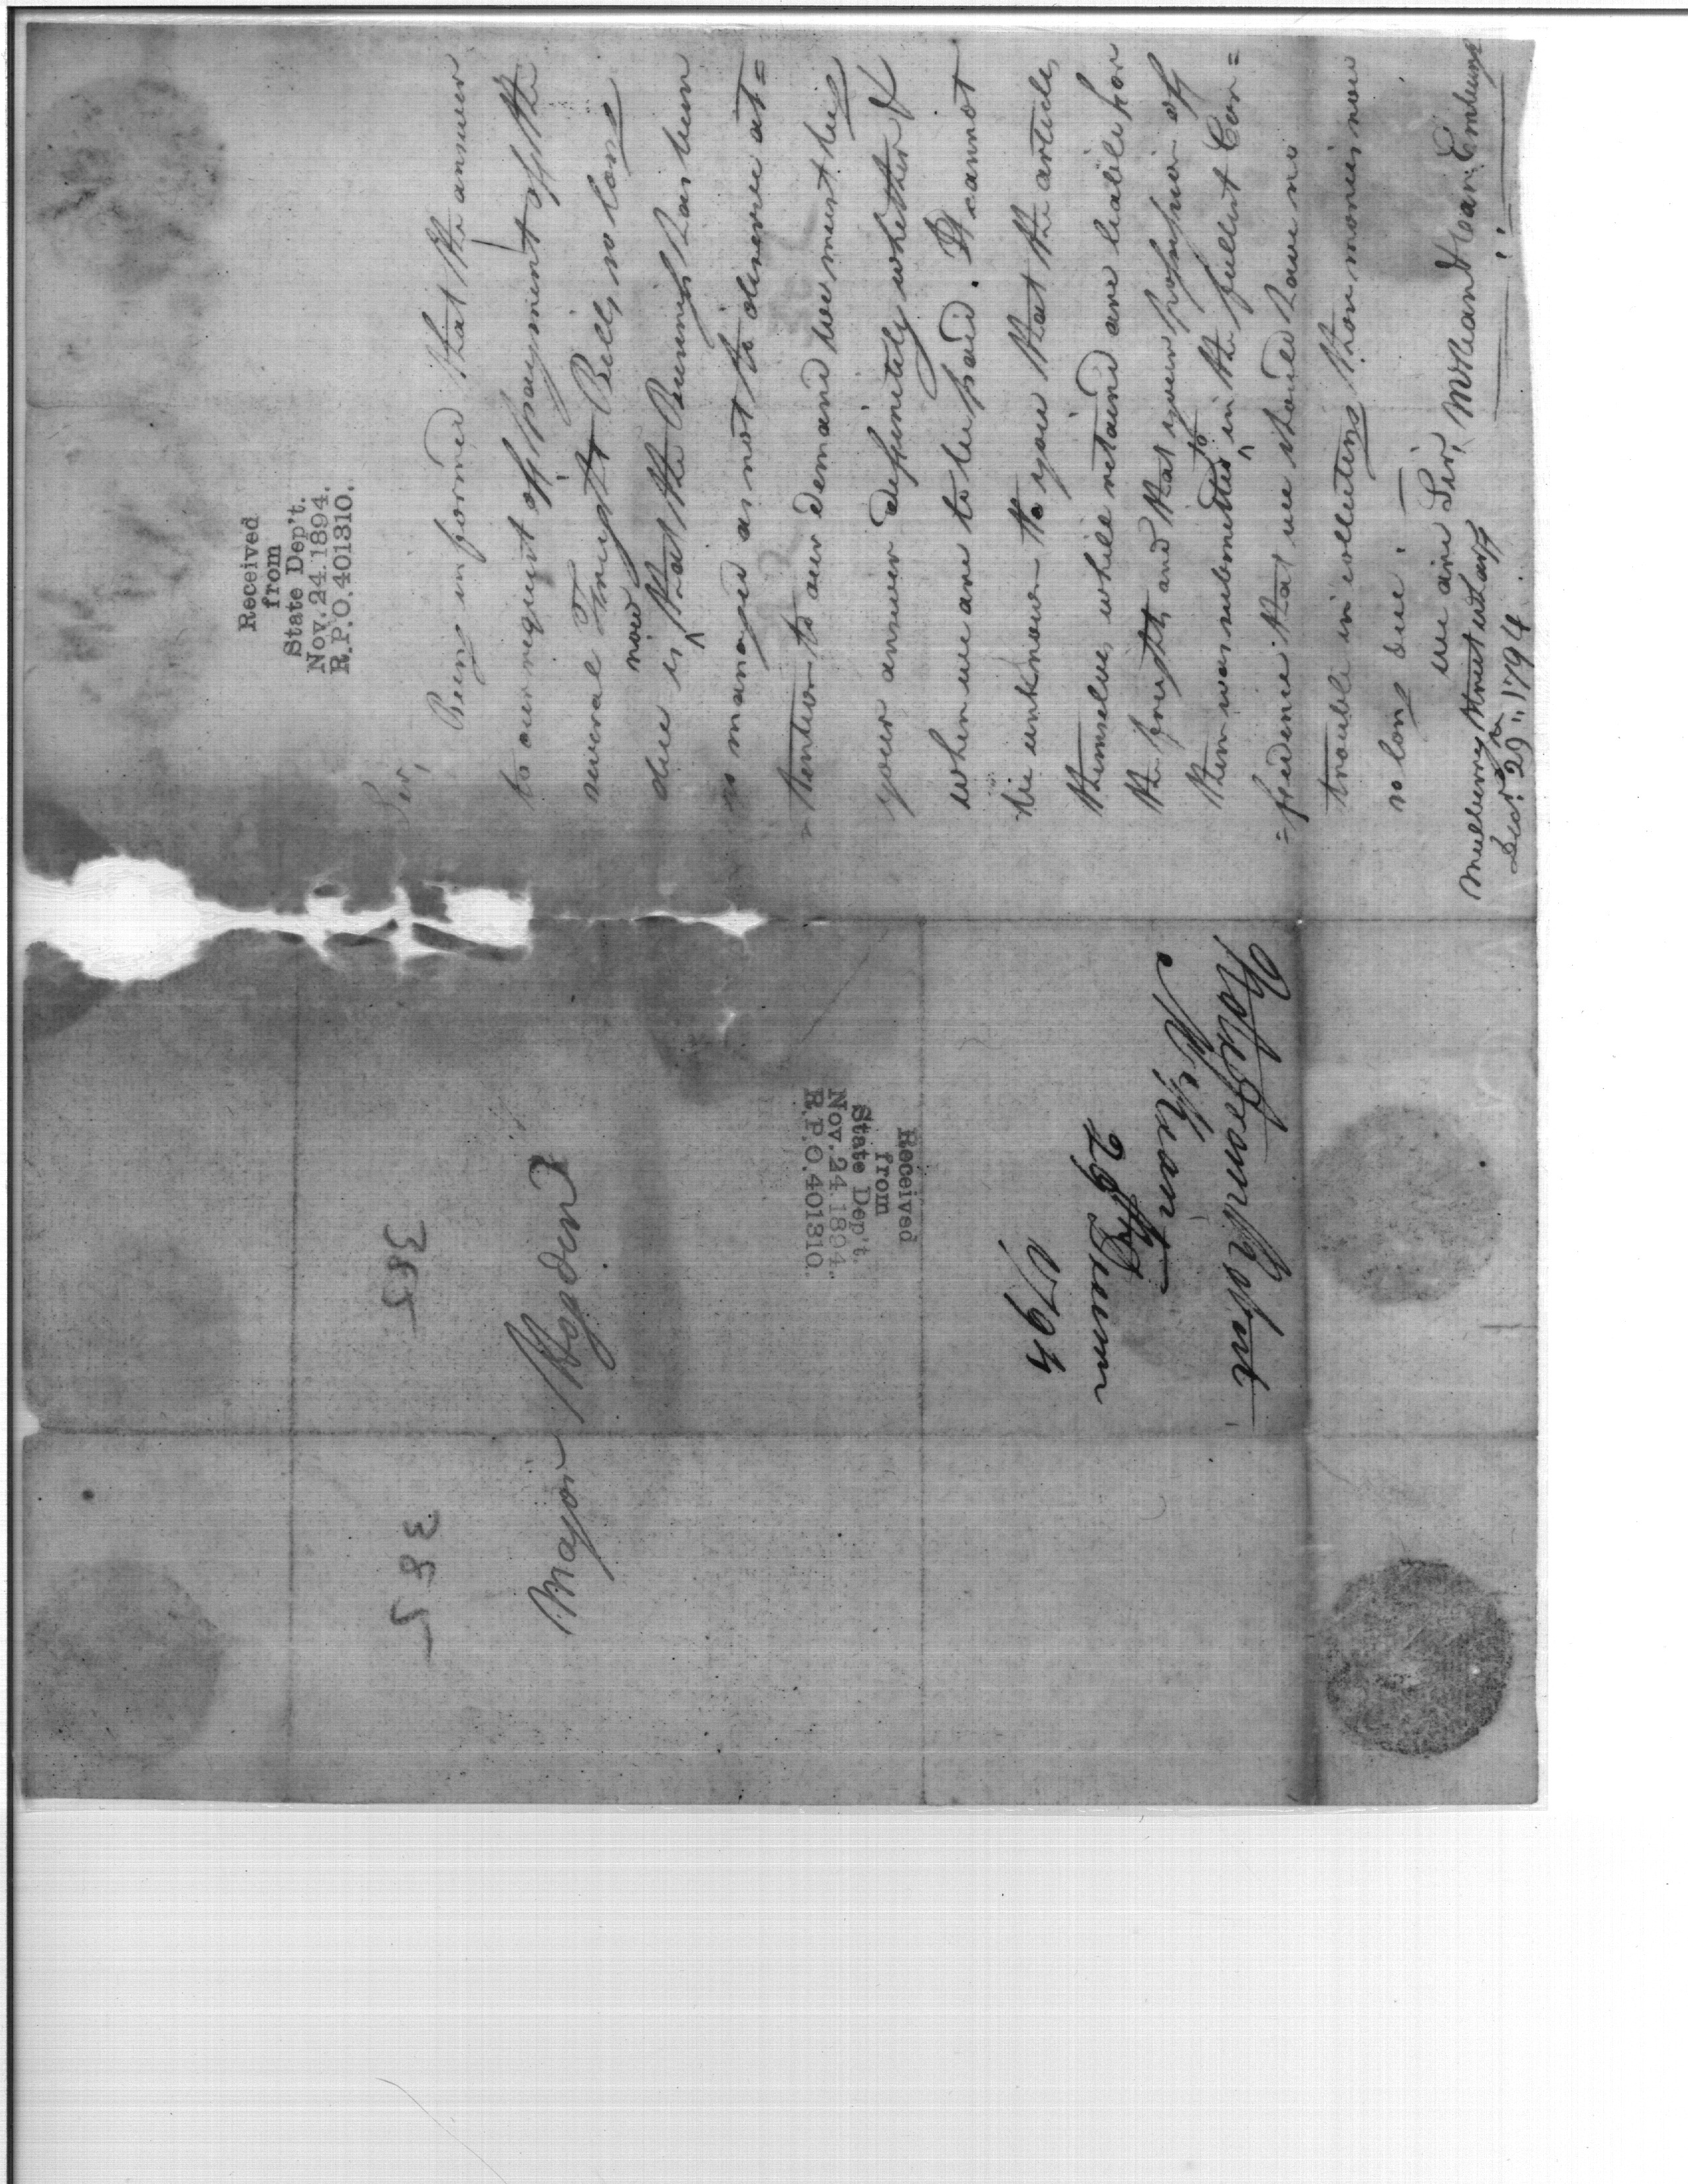 Received
from
State Dep't.
Nov. 24. 1894.
R.P.O. 401310.
Sir,
Being informed that the answer
to our request off payment off the
several Freight Bills, so long
due is now that the Business has been
so managed as not to deserve at=
=tention to our demand we must beg
your answer definitely whether &
when we are to be paid. It cannot
be unknown to you that the articles
themselves while retaind are liable for
the freight, and that your possession off
them was submitted to in the fullest Con=
=fidence that we should have no
trouble in collecting thou monies now
so long due. —
we are Sir,
Mulberry Street wharff
Decr. 29th 1794.
Received
from
State Dep't.
Nov. 24. 1894.
R.P.O. 401310.
McKean &
29th Decem
1794
Major Hogdend
385
385